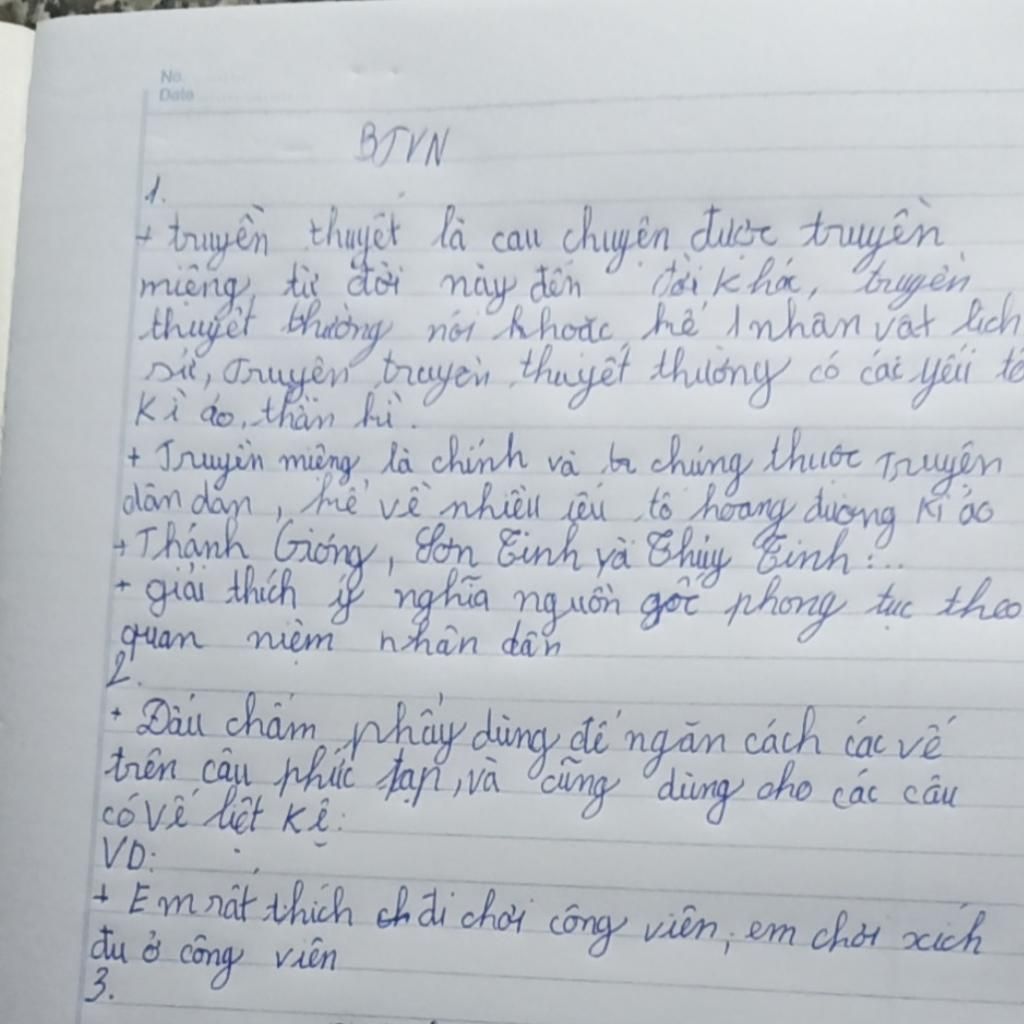 No.
Date
BTVN
1.
+ truyền thuyết là cau chuyện được truyền
miệng, từ đời này đến đời khác, truyền
thuyết thường nói khoác, kể 1 nhân vật lich
sử, Truyên truyền thuyết thường có các yếu tố
Kì ảo, thần kì.
+ Truyền miêng là chính và chúng thuộc Truyên
dân dan, kể về nhiều iếu tô hoang đương Kì ảo
+ Thánh Gióng, Sơn Tinh và Thủy Tinh :...
+ giải thích ý nghĩa nguồn gốc phong tục theo
quan niệm nhân dân
2.
+ Dấu chấm phẩy dùng để ngăn cách các vế
trên câu phức tạp, và cũng dùng cho các câu
có vế liệt kê.
VD:
+ Em rất thích đi chơi công viên; em chơi xích
đu ở công viên
3.